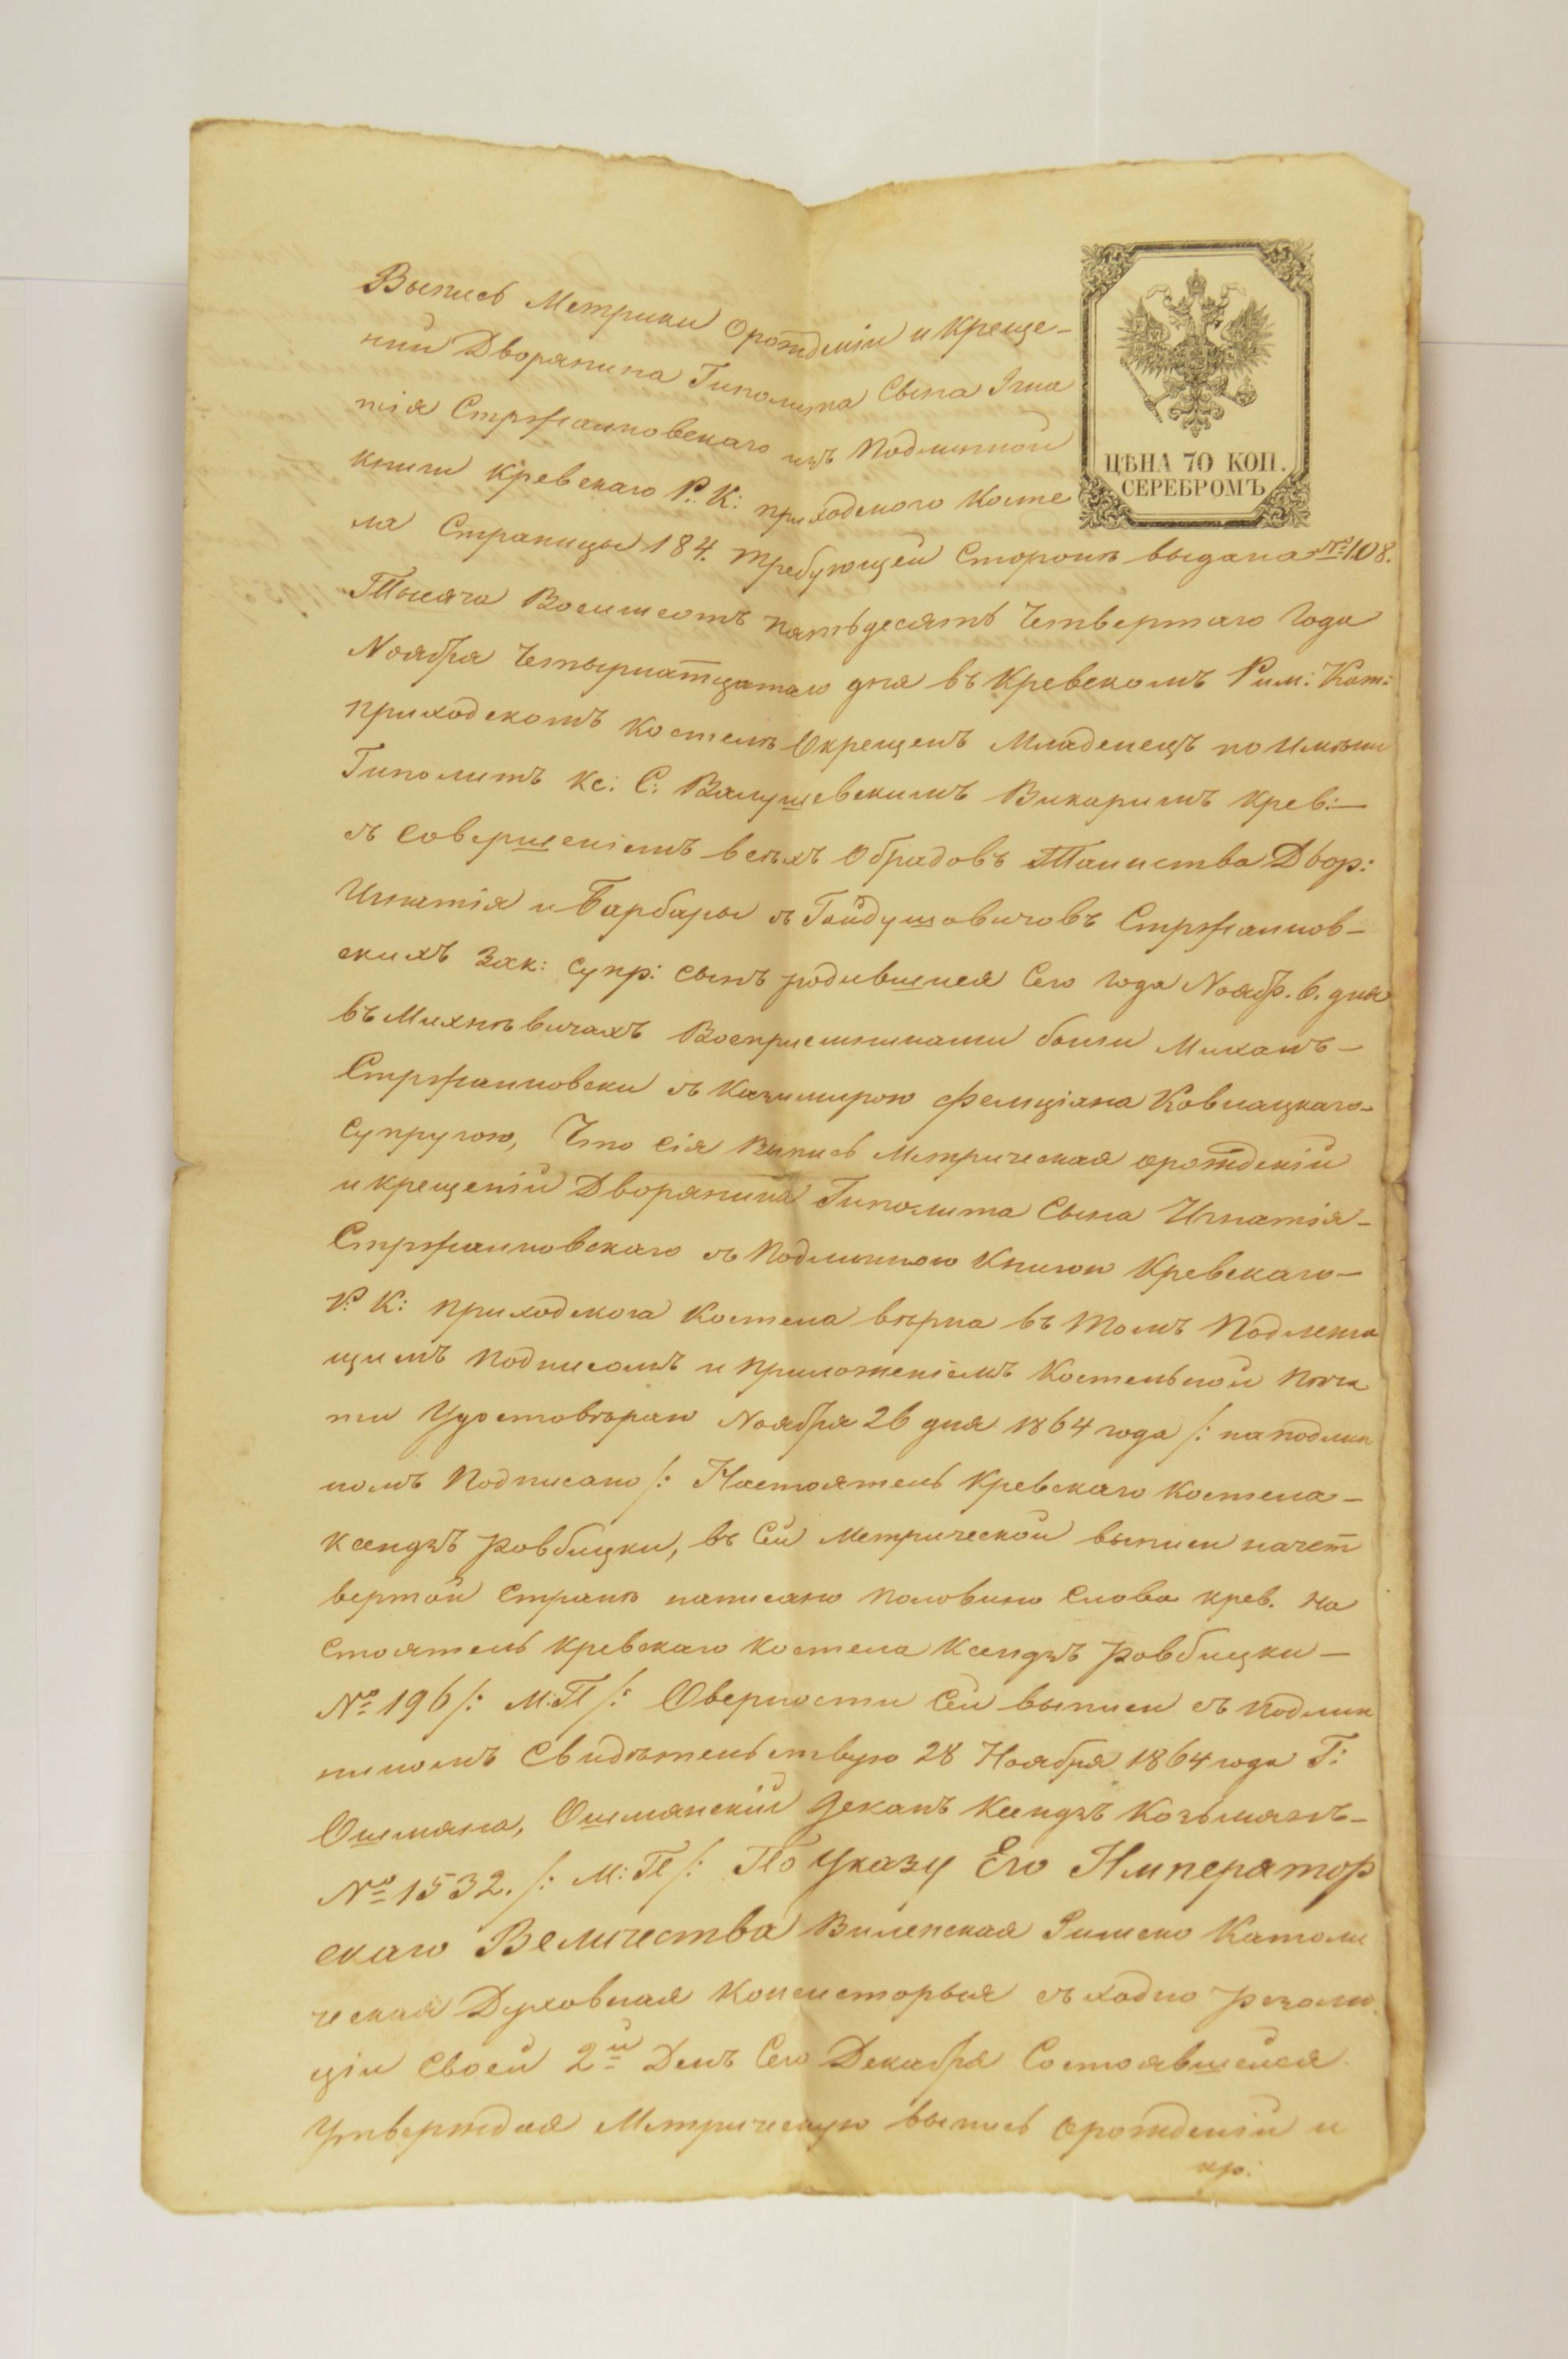 Выпись Метрики орождении и креще-
нии Дворянина Гиполита Сына Игна
тія Стржалковскаго изъ Подлинной
книги Кревскаго Р: К: приходского Косте
ла Страницы 184. требующей Сторонѣ выдана № 108.
ЦѢНА 70 КОП.
СЕРЕБРОМЪ
Тысяча Восимсотъ пятьдесятъ Четвертаго Года
Ноября Четырнатцатаго дня въ Кревскомъ Рим: Кат:
приходскомъ Костелѣ Окрещенъ Младенецъ по Имѣни
Гиполитъ Кс: С: Валушевскимъ Викаримъ Крев:—
съ Совершеніемъ всѣхъ Обрадовъ Таинства Двор:
Игнатія и Барбары съ Гайдушовичовъ Стржалков-
скихъ Зак: Супр: сынъ родившися Сего Года Нояб. 6. дня
въ Михнѣвичахъ Восприемниками были Михалъ—
Стржалковски съ Казимирою Фелиціана Ковнацкаго-
Супругою, Что Сія Выпись Метрическая орожденіи
и крещеніи Дворянина Гиполита Сына Игнатія-
Стржалковскаго съ Подлинною Книгою Кревскаго—
Р: К: приходскога Костела вѣрна въ томъ Подлежа
щимъ Подписомъ и приложеніемъ Костельной Печа
ти Удостовѣраю Ноября 26 дня 1864 года /: на подлин
номъ Подписано /: Настоятель Кревскаго Костела—
Ксендзъ Ровбицки, въ Сей Метрической выписи начет
вертой Странѣ написано половино Слова крев. На
стоятель Кревскаго Костела Ксендзъ Ровбицки—
№ 196 /: М:П /: Оверности Сей выписи съ Подлин
никомъ Свидѣтельствую 28 Ноября 1864 года Г:
Ошмяна, Ошмянскій Деканъ Ксендзъ Козьмянъ-
№ 1532. /: М:П /: По Указу Его Император
скаго Величества Виленская Римско Католи
ческая Духовная Консисторыя съходно резолю
ціи Своей 2й Денъ Сего Декабря Состоявшейся
Утверждая Метрическую выпись орожденіи и
кр: